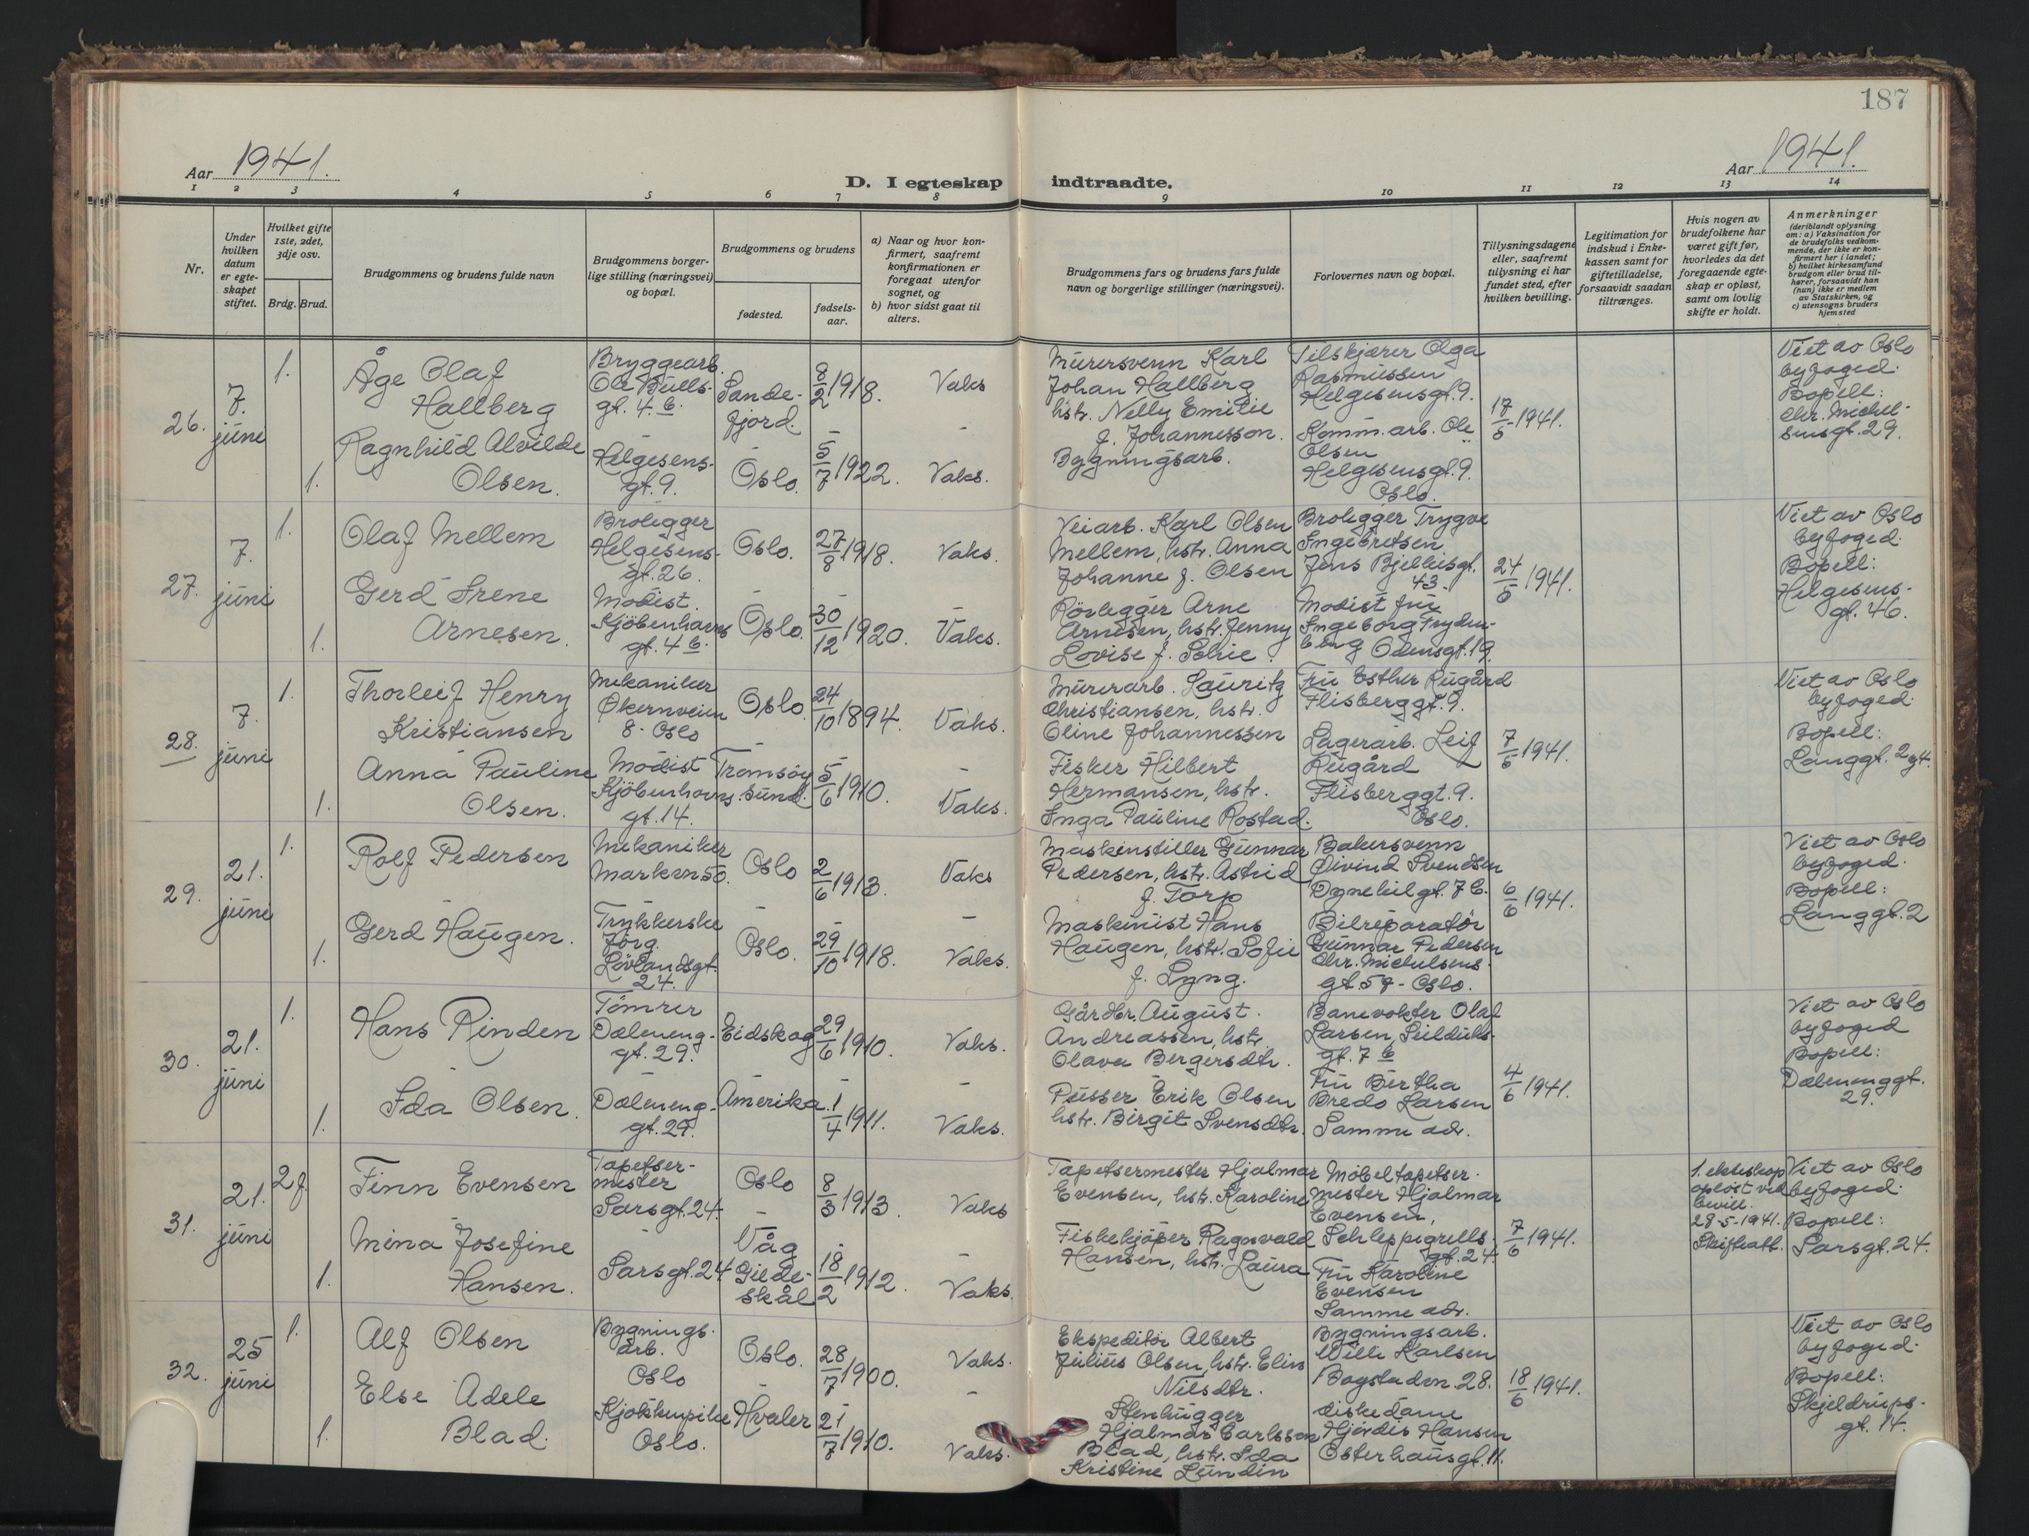 187
Aar 1941.
D. I egteskap indtraadte.
Aar 1941.
1 2 3 4 5 6 7 8 9 10 11 12 13 14
Nr.
Under
hvilken
datum
er egte-
skapet
stiftet.
Hvilket gifte
1ste, 2det,
3dje osv.
Brdg. Brud.
Brudgommens og brudens fulde navn
Brudgommens borger-
lige stilling (næringsvei)
og bopæl.
Brudgommens og brudens
fødested.
fødsels-
aar.
a) Naar og hvor kon-
firmert, saafremt
konfirmationen er
foregaat utenfor
sognet, og
b) hvor sidst gaat til
alters.
Brudgommens fars og brudens fars fulde
navn og borgerlige stillinger (næringsvei).
Forlovernes navn og bopæl.
Tillysningsdagene
eller, saafremt
tillysning ei har
fundet sted, efter
hvilken bevilling.
Legitimation for
indskud i Enke-
kassen samt for
giftetilladelse,
forsaavidt saadan
tiltrænges.
Hvis nogen av
brudefolkene har
været gift før,
hvorledes da det
foregaaende egte-
skap er opløst,
samt om lovlig
skifte er holdt.
Anmerkninger
(deriblandt oplysning
om: a) Vaksination for
de brudefolks vedkom-
mende, der ikke er kon-
firmert her i landet;
b) hvilket kirkesamfund
brudgom eller brud til-
hører, forsaavidt han
(hun) ikke er medlem
av Statskirken, og
c) utensogns bruders
hjemsted
26.
7.
juni
1.
Åge Olaf
Hallberg
Bryggearb.
Ole Bulls-
gt. 4. b.
Sande-
fjord.
8/2 1918.
Vaks
1.
Ragnhild Alvilde
Olsen.
Helgesens-
gt. 9.
Oslo.
5/7 1922.
Vaks.
Murersvenn Karl
Johan Hallberg
hstr. Nelly Emilie
f. Johannesson.
Bygningsarb.
Tilskjærer Olga
Rasmussen
Helgesensgt. 9.
Komm. arb. Ole
Olsen
Helgesensgt. 9.
Oslo.
17/5 1941.
Viet av Oslo
byfoged.
Bopell:
Chr. Michel-
sensgt. 29.
27.
7.
juni
1.
Olaf Mellem
Brolegger
Helgesens-
gt. 26.
Oslo.
27/8 1918.
Vaks.
1.
Gerd Irene
Arnesen.
Modist.
Kjöbenhavns
gt. 4 b.
Oslo.
30/12 1920.
Vaks.
Veiarb. Karl Olsen
Mellem, hstr. Anna
Johanne f. Olsen
Rörlegger Arne
Arnesen, hstr. Jenny
Lovise f. Schie.
Brolegger Trygve
Ingebretsen
Jens Bjelkesgt.
43.
Modist fru
Ingeborg Fryden-
berg Odensgt. 19.
24/5 1941.
Viet av Oslo
byfoged.
Bopell:
Helgesens-
gt. 46.
28.
7.
juni
1.
Thorleif Henry
Kristiansen
Mekaniker
Økernveien
8. Oslo
Oslo.
24/10 1894.
Vaks.
1.
Anna Pauline
Olsen.
Modist
Kjöbenhavns.
gt. 14.
Tromsøy
sund.
5/6 1910.
Vaks.
Murerarb. Lauritz
Christiansen, hstr.
Oline Johannessen
Fisker Hilbert
Hermansen, hstr.
Inga Pauline Rostad.
Fru Esther Rugård
Flisberggt. 9.
Lagerarb. Leif
Rugård
Flisberggt. 9.
Oslo.
7/6 1941.
Viet av Oslo
byfoged.
Bopell:
Langgt. 29
29.
21.
juni
1.
Rolf Pedersen
Mekaniker
Markvn 50.
Oslo
2/6 1913.
Vaks
1.
Gerd Haugen.
Trykkerske
Jörg.
Lövlandsgt.
24.
Oslo.
29/10 1918.
Vaks.
Maskinstiller Gunnar
Pedersen, hstr. Astrid
f. Torp
Maskinist Hans
Haugen, hstr. Sofie
f. Lyng.
Bakersvenn
Øivind Svendsen
Dynekilgt. 7 b.
Bilreparatør
Gunnar Pedersen
Chr. Michelsens.
gt. 59 - Oslo.
6/6 1941.
Viet av Oslo
byfoged.
Bopell:
Langgt. 2
30.
21.
juni
1.
Hans Rinden
Tömrer
Dæleneng-
gt. 29.
Eidskog
29/6 1910.
Vaks.
1.
Ida Olsen.
Dæleneng-
gt. 29.
Amerika.
1/4 1911.
Vaks.
Gårdbr. August
Andreassen, hstr.
Olava Bergersdtr.
Pusser Erik Olsen
hstr. Birgit Svensdtr.
Banevokter Olaf
Larsen Seilduks-
gt. 7 b
Fru Bertha
Bredo Larsen
Samme adr.
4/6 1941.
Viet av Oslo
byfoged
Bopell:
Dælenenggt.
29.
31.
21.
juni
2 f
Finn Evensen
Tapetser-
mester
Sarsgt. 24.
Oslo
8/3 1913.
Vaks
1.
Mina Josefine
Hansen.
Sarsgt. 24
Våg
Gilde-
skål
18/2 1912.
Vaks.
Tapetsermester Hjalmar
Evensen, hstr. Karoline
Fiskekjöper Ragnvald
Hansen, hstr. Laura
Möbeltapetser.
mester Hjalmar
Evensen,
Schleppigrells.
gt. 24.
Fru Karoline
Evensen
Samme adr.
7/6 1941.
1. ekteskap
opløst ved
bevill.
28-5-1941.
Skifteatt.
Viet av Oslo
byfoged.
Bopell:
Sarsgt. 24.
32.
25
juni
1.
Alf Olsen
Bygnings.
arb.
Oslo
Oslo.
28/7 1900.
Vaks.
1.
Else Adele
Blad.
Kjökkenpike
Oslo.
Hvaler
21/7 1910.
Vaks.
Ekspeditør Albert
Julius Olsen, hstr. Elin
Nilsdtr.
Stenhugger
Hjalmar Carlsson
Blad, hstr. Ida
Kristine Lundin
Bygningsarb.
Wille Karlsen
Bogstadvn 28.
diskedame
Hjördis Hansen
Osterhausgt. 11.
18/6 1941.
Viet av Oslo
byfoged.
Bopell:
Skjeldrups-
gt. 14.